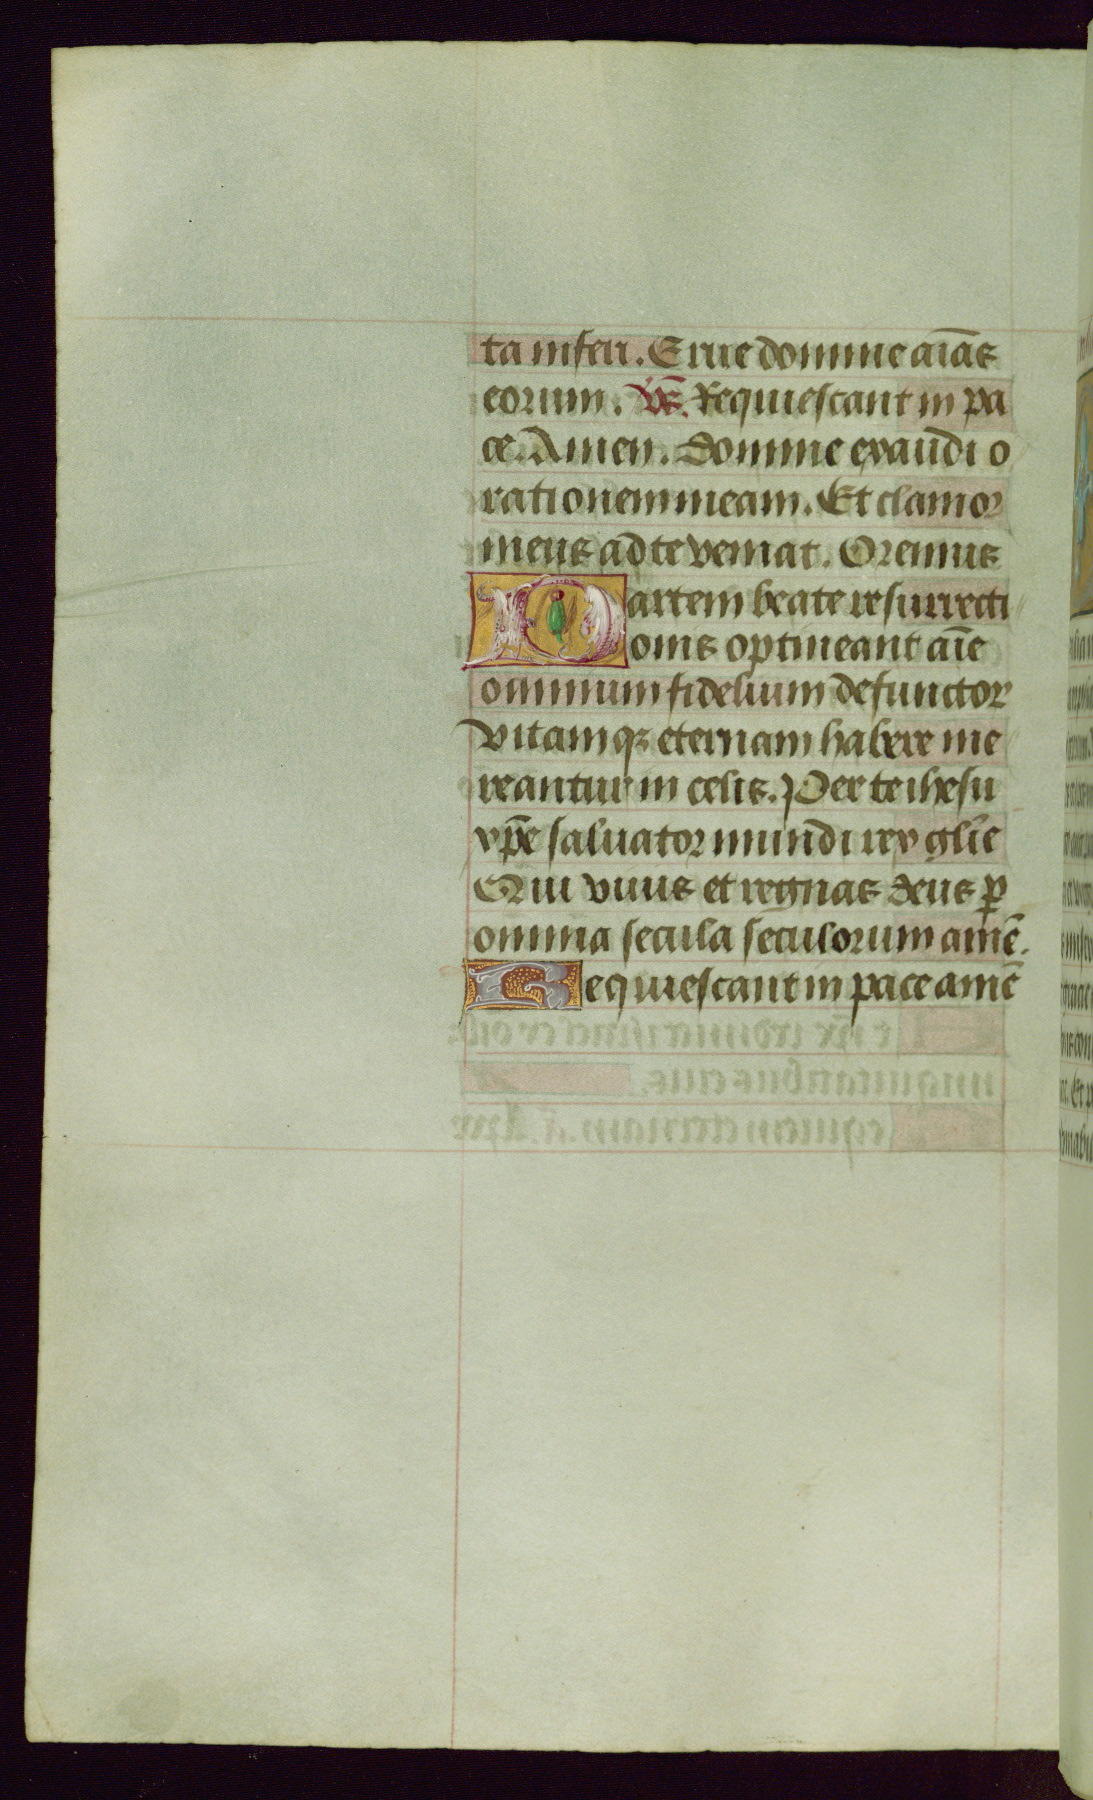 ta inferi. Erue domine aīas
eorum. Vs̄. Requiescant in pa
ce. Amen. Domine exaudi o
rationem meam. Et clamor
meus ad te veniat. Oremus
Partem beate resurrecti
onis optineant aīe
omnium fidelium defunctor
vitamqȝ eternam habere me
reantur in celis. Per te ihesu
xp̄e saluator mundi rex glīe
Qui viuis et regnas deus ꝑ
omnia secula seculorum amē.
Requiescant in pace amē